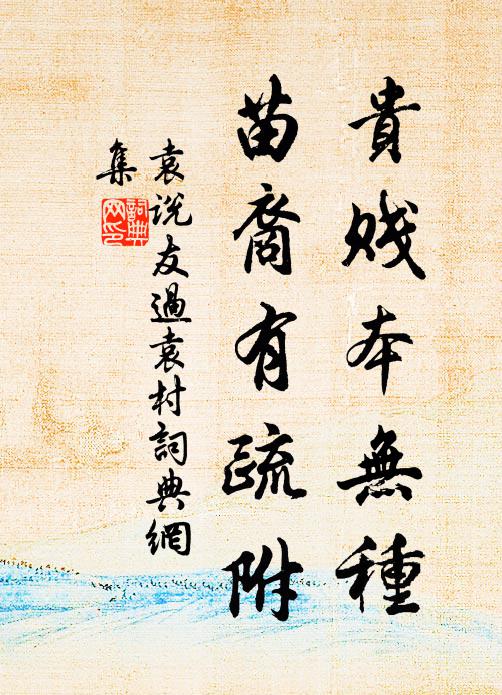 貴賤本無種
苗裔有疏附
袁说友過袁村詞典網
集
詞典
网印